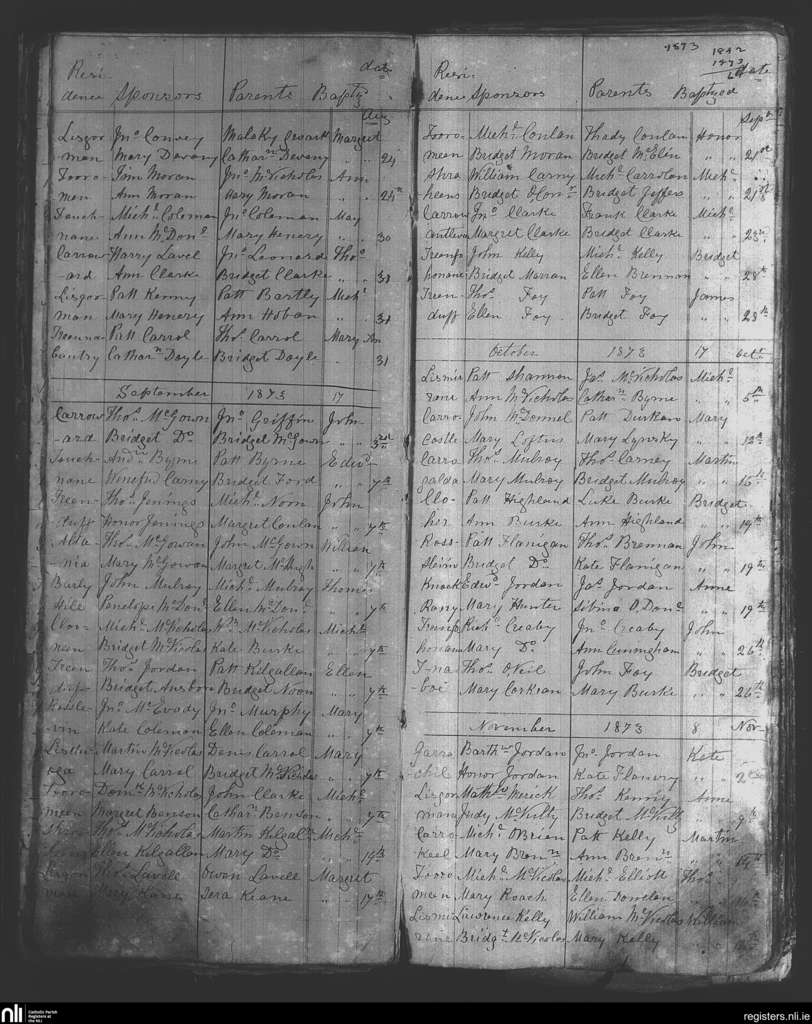 Resi- date
dence Sponsors Parents Baptz
Aug
Lisgor Jno. Convey Malaky Margret
man Mary Devany Cathar'n Devany " " 24
Tooro- John Moran Jno. McNicholas Ann
men Ann Moran Mary Moran " . 24th
Touch- Mich'l. Coleman Jno. Coleman May
nane Ann McDon'l Mary Henery " " 30
Carrow Harry Lavel Jno. Leonard Tho's
-ard Ann Clarke Bridget Clarke " " 31
Lisgor- Patt Kenny Patt Bartly Mich'l
man Mary Henery Ann Hoban " " 31
Patt Carrol Tho's. Carrol Mary Ann
Cathar'n Doyle- Bridget Doyle . 31
September 1873 17
Carrow Tho's. McGown Jno. Griffin John
-ard Bridget Do. Bridget McGown " " 3rd
Touch- And'w Byrne Patt Byrne Edw'd
nane Winefrd Carny Bridget Ford " " 7th
Treen- Tho's. Jennings Mich'l. Noon John
duff Honor Jennings Margret Conlan " " 7th
Tho's. McGowan John McGown William
Mary McGowan Margret McHugh " " 7th
Barly John Mulroy Mich'l. Mulroy Thomas
Hill Penelope McDon'l Ellen McDon'l " 7th
Cloon- Mich'l. McNicholas Wm. McNicholas Mich'l
nan Bridget McNicolas Kate Burke " " 7th
Treen Tho's. Jordan Patt Kilgallon Ellen
duff Bridget Bridget Noon " " 7th
Jno. McEvody Jno. Murphy Mary
Kate Coleman Ellen Coleman " " 7th
Martin McNicolas Denis Carrol Mary
Mary Carrol Bridget McNicholas " " 7th
Tooro- Dom'k McNicholas John Clarke Mich'l
meen Margret Benson Cathar'n Benson " 7th
Tho's. McNicholas Martin Kilgal'n Mich'l
Ellen Kilgallon Mary Do. " " 14th
Lisgor Tho's. Lavelle Owen Lavell Margret
man Mary Kane Keane " " 17th
1873 1842
1873
Resi- date
dence Sponsors Parents Baptzed
Sept'r
Tooro- Mich'l. Conlan Thady Conlan Honor
meen Bridget Moran Bridget " " 21st
Shra William Carny Mich'l. Carrolan Mich'l.
heens Bridget OCon'r Bridget Jeffers " " 21st
Carrow Jno. Clarke Frank Clarke Mich'l.
Margret Clarke Bridget Clarke " " 23th
John Kelly Mich'l. Kelly Bridget
Bridget Marran Ellen Brennan " " 28th
Treen- Tho's. Foy Patt Foy James
duff Ellen Foy. Bridget Foy " " 28th
October 1873 17 Oct'r
Lismir Patt Shannon Ja's. McNicholas Mich'l.
rane Ann McNicholas Cathar'n Byrne " " 5th
Carro- John McDonnel Patt Durkan Mary
castle Mary Loftus Mary Lynsky " " 12th
Carra Tho's. Mulroy Tho's. Carney Martin
galda Mary Mulroy Bridget Mulroy " " 15th
Clo- Patt Highland Luke Burke Bridget
her Ann Burke Ann Highland " " 19th
Ross- Patt Flanigan Tho's. Brennan John
Bridget Do. Kate Flanigan " " 19th
Knock Edw'd. Jordan Ja's. Jordan Anne
Rany Mary Hunter Sebina O.Don'l " " 19th
Rich'd. Creaby Jno. Creaby John
Mary Do. Ann Cuningham " " 26th
T-na Tho's. ONeil John Foy Bridget
-boe Mary Corkran Mary Burke " " 26th
November 1873 8 Nov-
Garra Barth'w Jordan Jno. Jordan Kate
chil Honor Jordan Kate Flanery " " 2
Lisgor Merick Tho's. Kenny Anne
mana Judy McNilty Bridget McNilty " " 9th
Carro- Mich'l. OBrien Patt Kelly Martin
keel Mary Bren'n Ann Bren'n " " 14th
Tooro- Mich'l. McNicolas Mich'l. Elliott Tho's.
men Mary Roach Ellen Donelan " "
Lismir Lawrence Kelly William McNicolas William
rane Bridg't. McNicolas Mary Kelly " "
nli Catholic Parish
Registers at
the NLI
registers.nli.ie